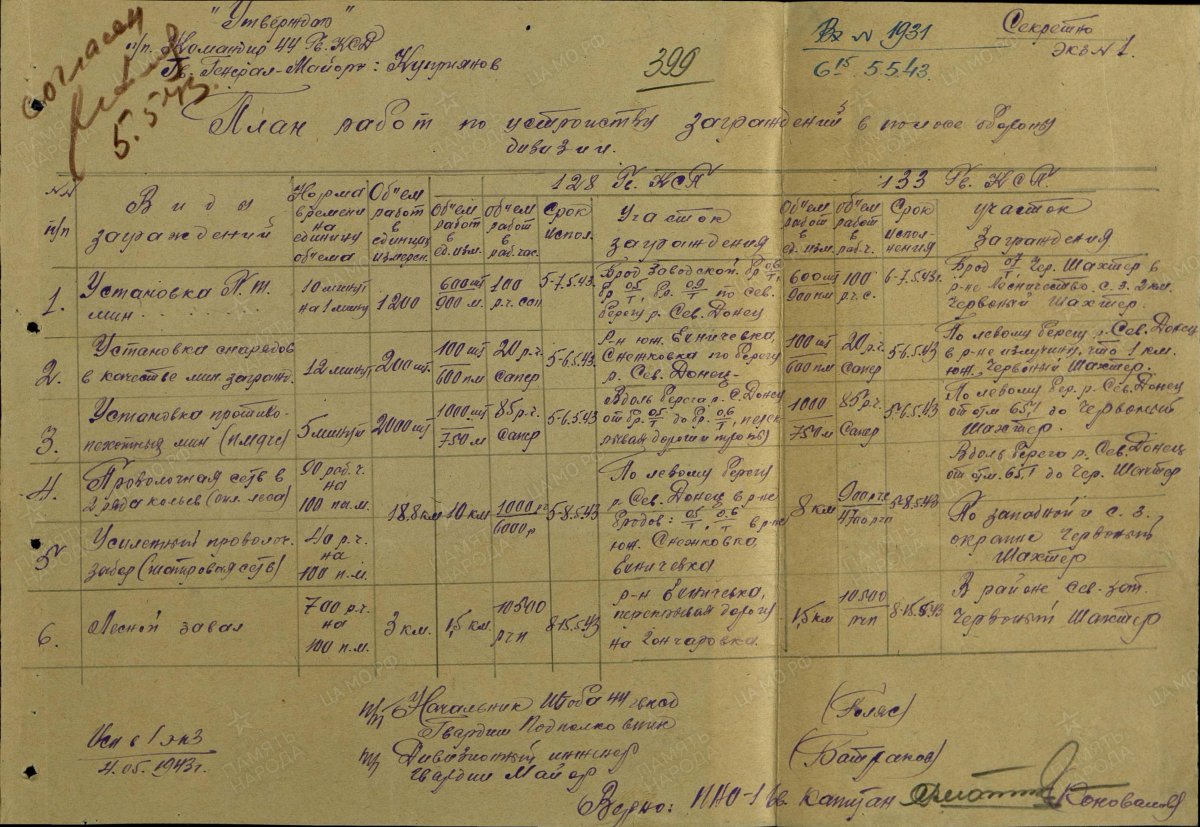 согласен
5.5.43.
"Утверждаю"
п/п. Командир 44 Гв. КСД
Гв. Генерал-Майор: Куприянов
399
Вх № 1931
6 15 5.5.43.
Секретно
экз N 1.
План работ по устройству заграждений в полосе обороны
дивизии.
NN п/п
Виды заграждений
Норма времени на единицу объема
Об"ем работ в единицах измерен.
128 Гв. КСП
133 Гв. КСП.
Об"ем работ в ед. изм.
об"ем работ в раб.час.
Срок испол.
Участок заграждения
Об"ем работ в ед. изм.
об"ем работ в раб.ч.
Срок исполнения
участок Заграждения
1.
Установка П.т.
мин . . . . . .
10 минут
на 1 мину
1200
600 шт
900 м.
100
р.ч. сап
5-7.5.43г.
Брод Заводской. бр 06/т,
бр 05/т, бр. 09/т по сев.
берегу р. Сев. Донец
600 шт
900 пм
100
р.ч. с.
6-7.5.43г.
Брод 07/т, Чер. Шахтер в
р-не Лесничество с. з. 2 км.
Червоный Шахтер.
2.
Установка снарядов
в качестве мин. загражд.
12 минут
200 шт.
100 шт
600 пм
20 р.ч.
сапер
5-6.5.43
Р-н юж. Еничевка,
Снежковка по берегу
р. Сев. Донец-
100 шт
600 пм
20 р.ч.
Сапер
5-6.5.43
По левому берегу р. Сев. Донец
в р-не излучины, что 1 км.
юж. Червоный Шахтер.
3.
Установка противо-
пехотных мин (пмдчс)
5 минут
2000 шт
1000 шт
750 м
85 р.ч.
Сапер
5-6.5.43
Вдоль берега р. С. Донец
от бр. 05/т до бр. 06/т, перек-
рывая дороги и тропы
1000
750 м
85 р.ч.
Сапер
5-6.5.43
По левому бер. р. Сев. Донец
от отм. 65,1 до Червоный
Шахтер.
4.
Проволочная сеть в
2 ряда кольев (опл. леса)
90 раб. ч.
на
100 п.м.
18.8 км
10 км
1000 р.ч
6000 р
5-8.5.43
По левому берегу
р. Сев. Донец в р-не
бродов: 05/т, 06/т, в р-не
юж. Снежковка,
Еничевка
8 км
900 рчс
4700 рчп
5-8.5.43
Вдоль берега р. Сев. Донец
от отм. 65,1 до Чер. Шахтер
5
Усиленный проволоч.
забор (шатровая сеть)
40 р.ч.
на
100 п.м.
По западной и с. з.
окраине Червоный
Шахтер
6.
Лесной завал
700 р.ч.
на
100 п.м.
3 км.
1,5 км
10500
рчп
8-15.5.43
р-н Еничевка,
перекрывая дорогу
на Гончаровка.
1,5 км
10500
рчп
8-15.5.43
В районе сев-зап.
Червоный Шахтер
п/п Начальник Штаба 44 гвксд
Гвардии Подполковник
(Голяс)
Исп в 1 экз
4.05.1943г.
п/п Дивизионный инженер
Гвардии Майор
(Батраков)
Верно: ПНО-1 гв. Капитан Коновалов